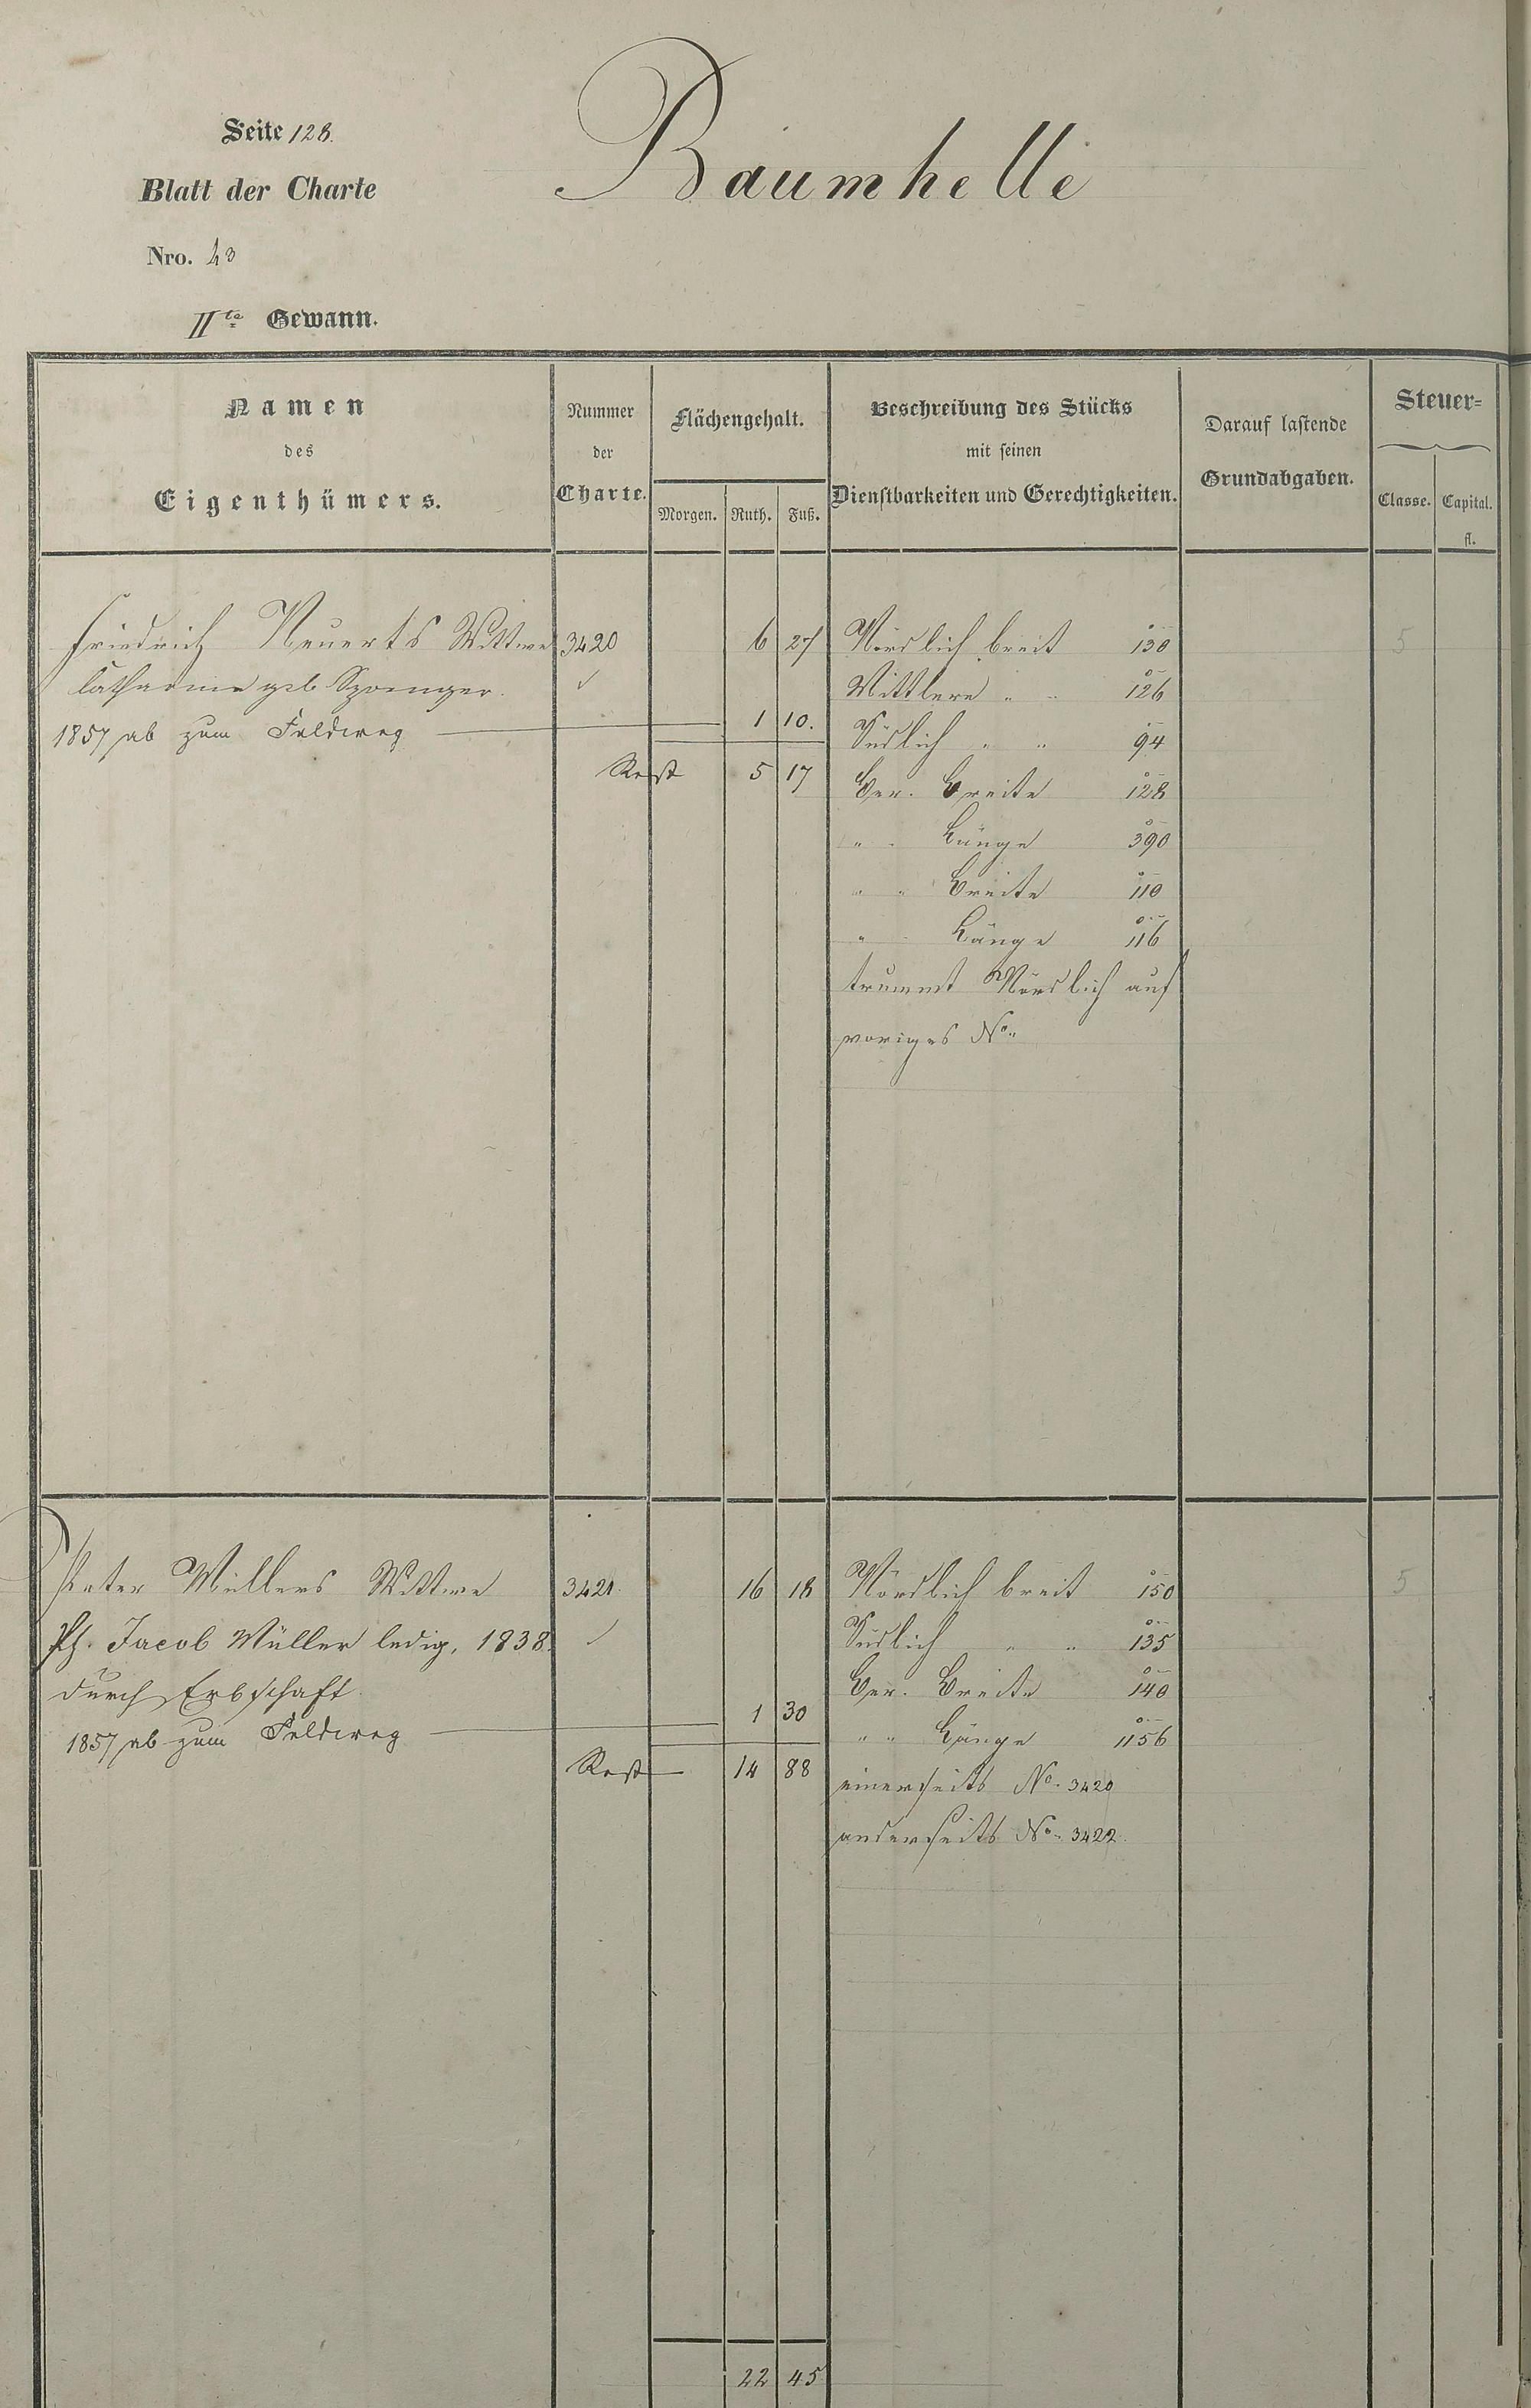 Seite 128.
Baumhelle
Blatt der Charte
Nro. 43
IIte Gewann.
Namen des Eigenthümers.
Nummer der Charte.
Flächengehalt.
Morgen. Ruth. Fuß.
Beschreibung des Stücks mit seinen Dienstbarkeiten und Gerechtigkeiten.
Darauf lastende Grundabgaben.
Steuer=
Classe. Capital. fl.
Friedrich Neuerts Wittwe 3420 6 27 Nördlich breit 130 5
Catharina geb. Sprenger. Mittlere " " 126
1857 ab zum Feldweg 1 10. Südlich " " 94
Rest 5 17 Ber. Breite 128
" " Länge 390
" " Breite 110
" " Länge 116
trummt Nördlich auf
voriges No.
Peter Müllers Wittwe 3421. 16 18 Nördlich breit 150 5
Ph. Jacob Müller ledig, 1838. Südlich " " 135
durch Erbschaft. Ber. Breite 140
1857 ab zum Feldweg 1 30 " " Länge 1156
Rest 14 88 einerseits No. 3420
anderseits No. 3422.
22 45